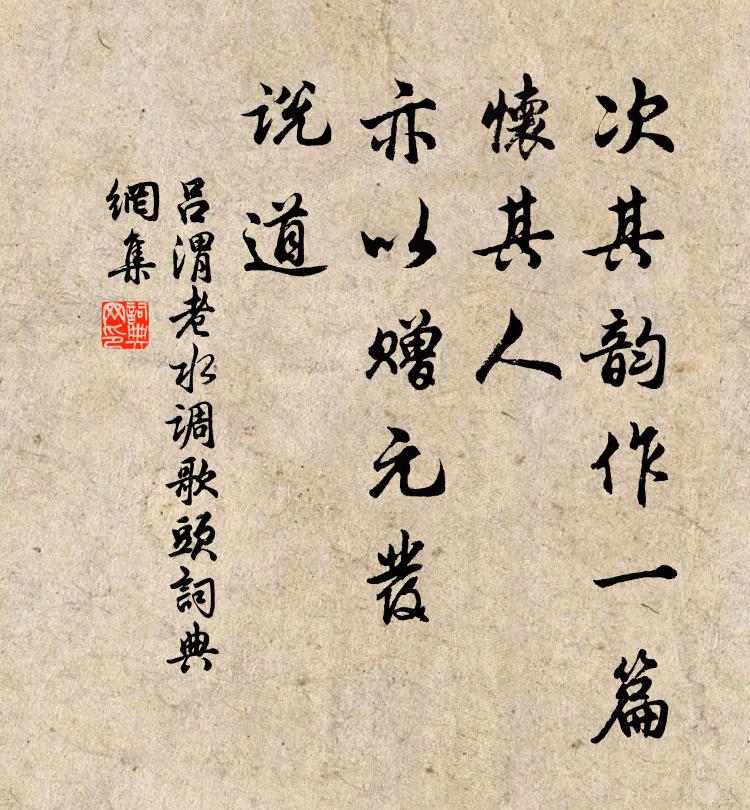 次其韵作一篇
懷其人
亦以赠元發
説道
吕渭老水调歌頭詞典
網集
詞典
网印